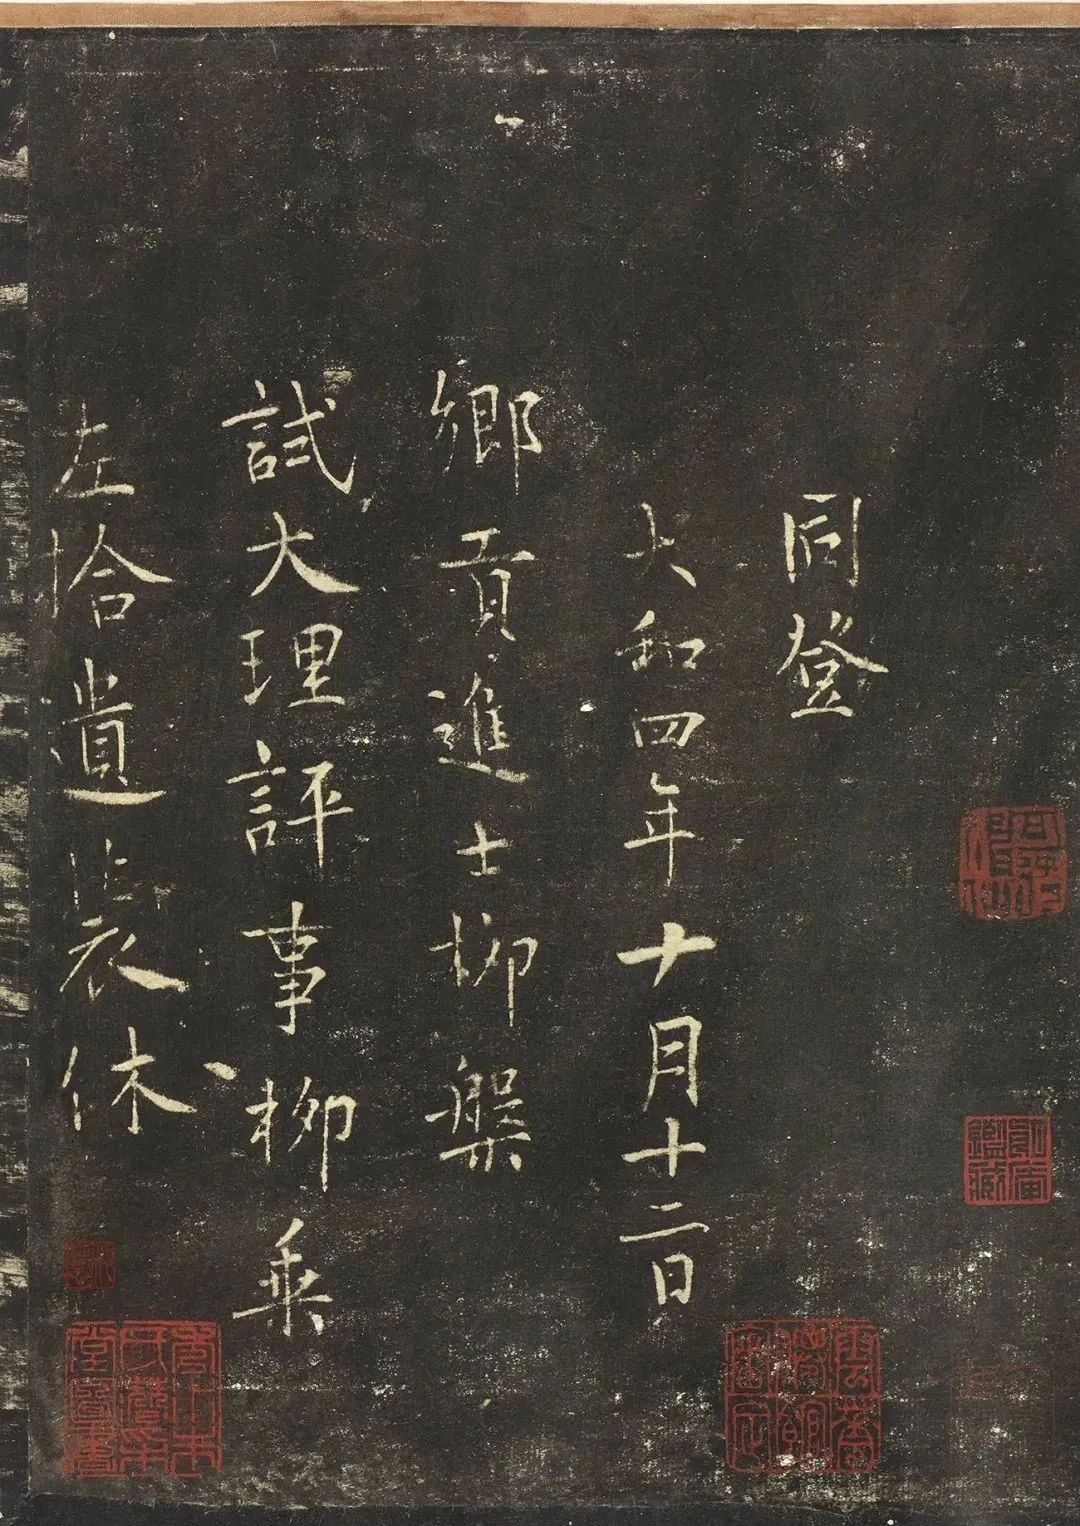 同登
大和四年十月十二日
鄉貢進士柳槃
試大理評事柳乘
左拾遺裴休